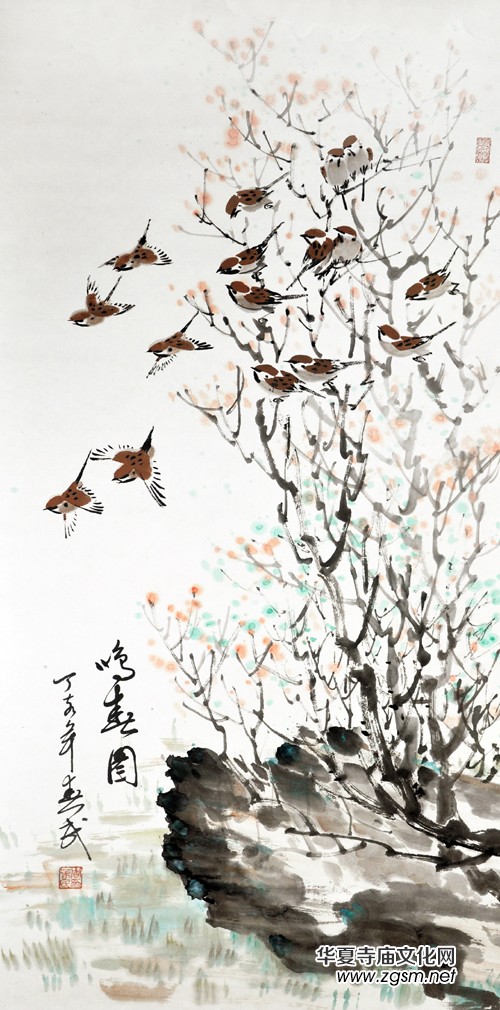 鸣春图
丁亥年春民
华夏寺庙文化网
www.zgsm.net